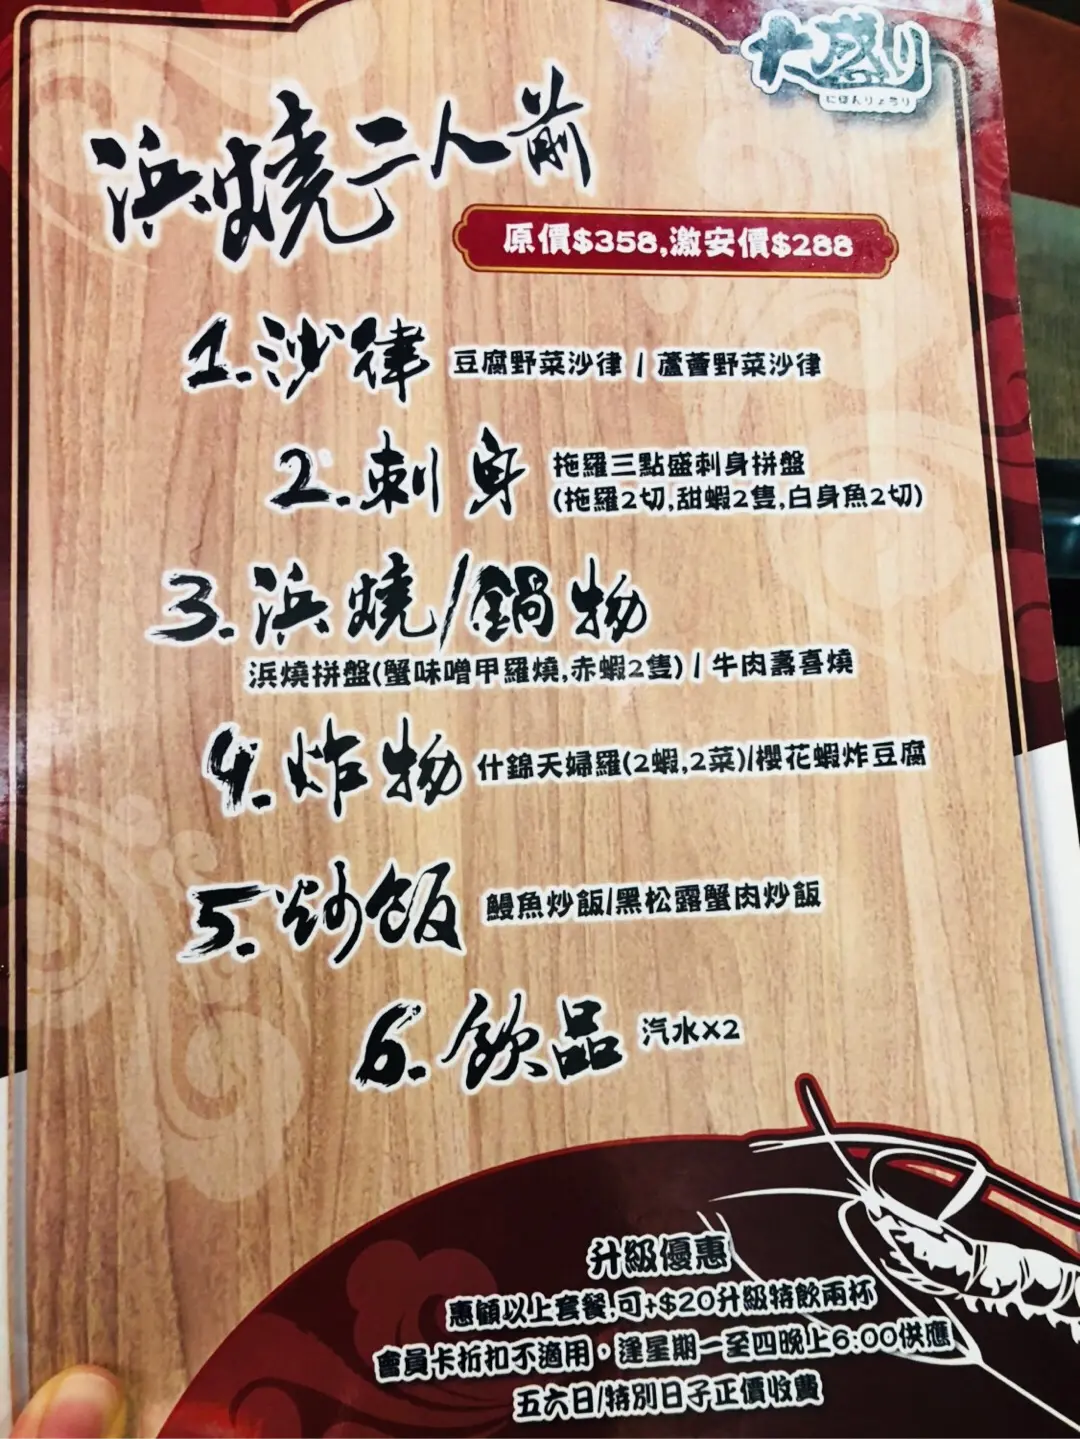 大盛り
にほんりょうり
浜燒二人前
原價$358,激安價$288
1.沙律 豆腐野菜沙律 / 蘆薈野菜沙律
2.刺身 拖羅三點盛刺身拼盤
(拖羅2切,甜蝦2隻,白身魚2切)
3.浜燒/鍋物
浜燒拼盤(蟹味噌甲羅燒,赤蝦2隻) / 牛肉壽喜燒
4.炸物 什錦天婦羅(2蝦,2菜)/櫻花蝦炸豆腐
5.炒飯 鰻魚炒飯/黑松露蟹肉炒飯
6.飲品 汽水X2
升級優惠
惠顧以上套餐,可+$20升級特飲兩杯
會員卡折扣不適用。逢星期一至四晚上6:00供應
五六日/特別日子正價收費